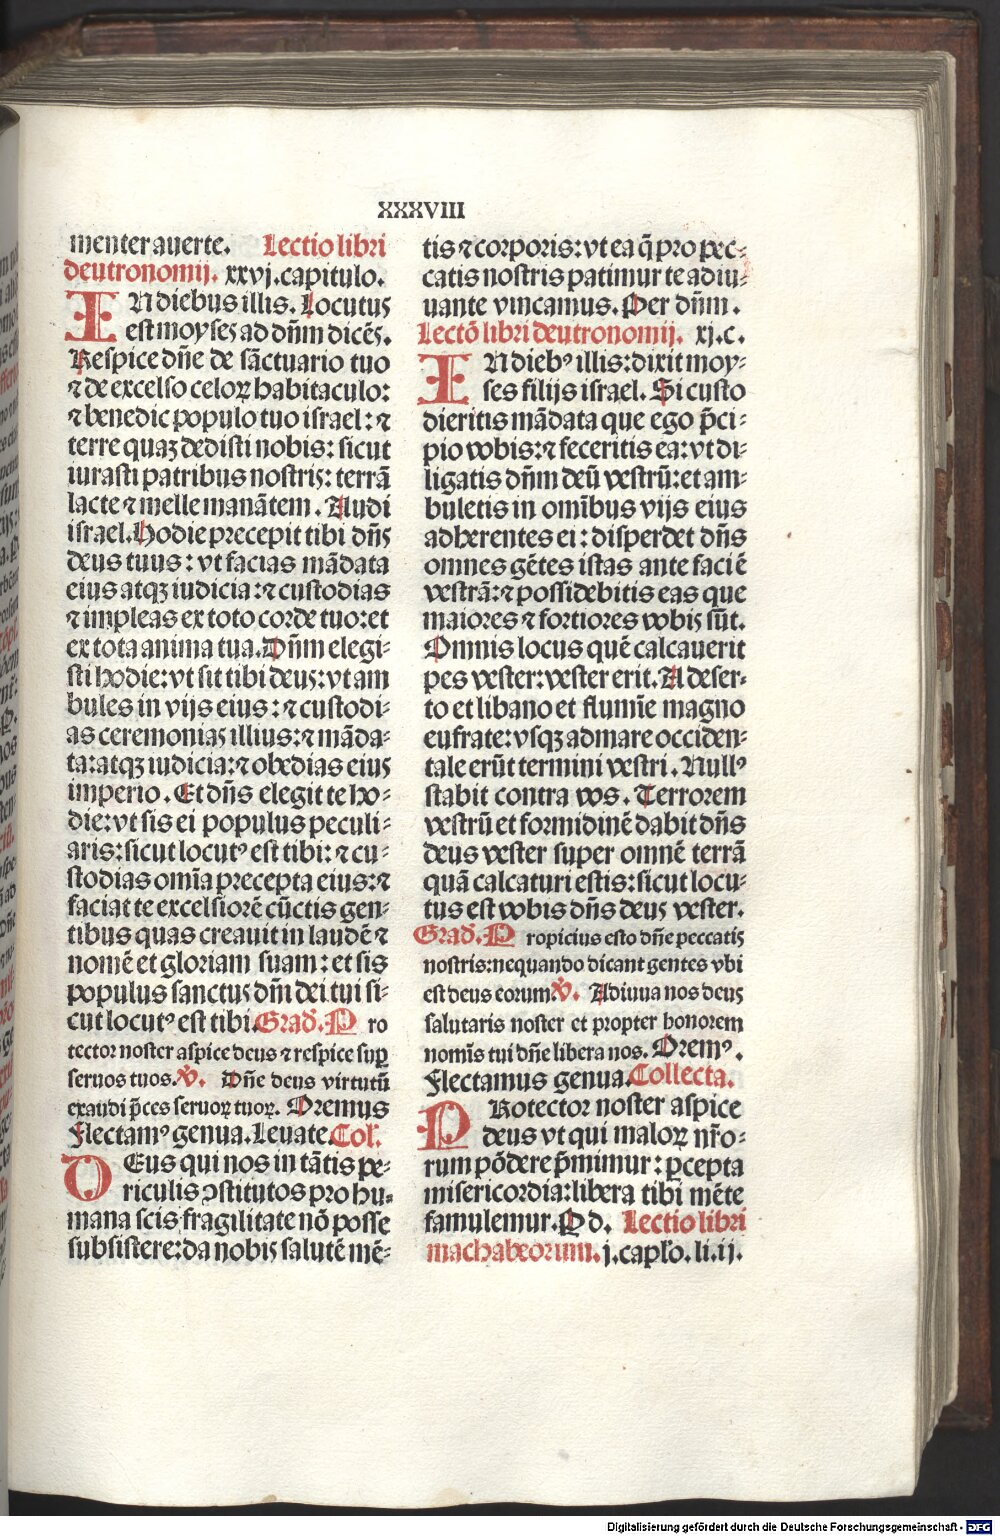 XXXVIII
menter auerte. Lectio libri
deutronomij. xxvj. capitulo.
IN diebus illis. Locutus
est moyses ad dn̄m dicēs.
Respice dn̄e de sāctuario tuo
⁊ de excelso celoꝝ habitaculo:
⁊ benedic populo tuo israel: ⁊
terre quaꝫ dedisti nobis: sicut
iurasti patribus nostris: terrā
lacte ⁊ melle manātem. Audi
israel. Hodie precepit tibi dn̄s
deus tuus: vt facias mādata
eius atqꝫ iudicia: ⁊ custodias
⁊ impleas ex toto corde tuo: et
ex tota anima tua. Dn̄m elegi-
sti hodie: vt sit tibi deus: vt am
bules in vijs eius: ⁊ custodi-
as ceremonias illius: ⁊ māda-
ta: atqꝫ iudicia: ⁊ obedias eius
imperio. Et dn̄s elegit te ho-
die: vt sis ei populus peculi-
aris: sicut locutꝰ est tibi: ⁊ cu-
stodias om̄ia precepta eius: ⁊
faciat te excelsiorē cūctis gen-
tibus quas creauit in laudē ⁊
nomē et gloriam suam: et sis
populus sanctus dn̄i dei tui si-
cut locutꝰ est tibi. Grad. P ro
tector noster aspice deus ⁊ respice suꝑ
seruos tuos. V̄. Dn̄e deus virtutū
exaudi p̄ces seruoꝝ tuoꝝ. Oremus
Flectamꝰ genua. Leuate. Col.
DEus qui nos in tātis pe-
riculis ꝯstitutos pro hu-
mana scis fragilitate nō posse
subsistere: da nobis salutē mē-
tis ⁊ corporis: vt ea q̄ pro pec-
catis nostris patimur te adiu-
uante vincamus. Per dn̄m.
Lectō libri deutronomij. xj. c.
IN diebꝰ illis: dixit moy-
ses filijs israel. Si custo
dieritis mādata que ego p̄ci-
pio vobis: ⁊ feceritis ea: vt di-
ligatis dn̄m deū vestrū: et am-
buletis in om̄ibus vijs eius
adherentes ei: disperdet dn̄s
omnes gētes istas ante faciē
vestrā: ⁊ possidebitis eas que
maiores ⁊ fortiores vobis sūt.
Omnis locus quē calcauerit
pes vester: vester erit. A deser-
to et libano et flumīe magno
eufrate: vsqꝫ ad mare occiden-
tale erūt termini vestri. Nullꝰ
stabit contra vos. Terrorem
vestrū et formidinē dabit dn̄s
deus vester super omnē terrā
quā calcaturi estis: sicut locu-
tus est vobis dn̄s deus vester.
Grad. P ropicius esto dn̄e peccatis
nostris: nequando dicant gentes vbi
est deus eorum. V̄. Adiuua nos deus
salutaris noster et propter honorem
nomīs tui dn̄e libera nos. Oremꝰ.
Flectamus genua. Collecta.
PRotector noster aspice
deus vt qui maloꝝ nr̄o-
rum pōdere p̄mimur: ꝑcepta
misericordia: libera tibi mēte
famulemur. P d. Lectio libri
machabeorum. j. capło. li. ij.
Digitalisierung gefördert durch die Deutsche Forschungsgemeinschaft - DFG